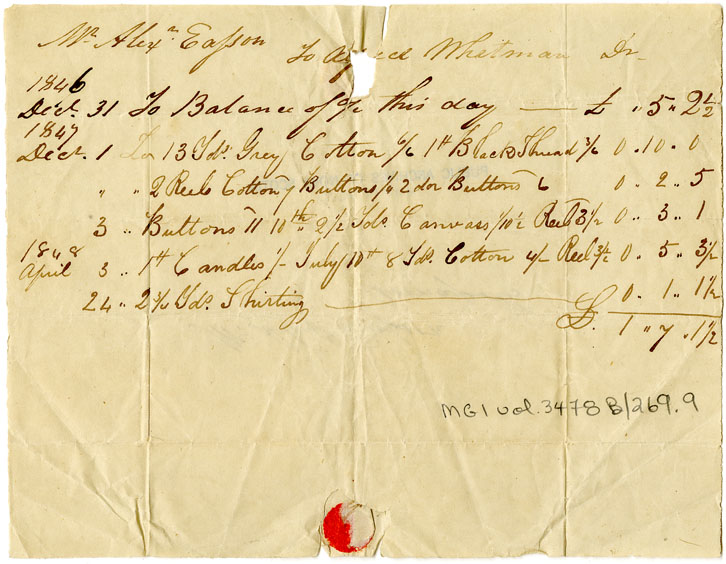 Mr. Alexn. Easson To Whitman Dr
1846
Dect. 31 To Balance of a/c this day — £ " 5 " 2 1/2
1847
Dect. 1 To 13 Yds. Grey Cotton 6/6 1 lb Black Thread 3/6 0 . 10 . 0
" " 2 Reels Cotton 7 Buttons 2 doz Buttons 6 0 . 2 . 5
3 " Buttons 11 10th " 2 1/2 Yds. Canvass 1/10 1/2 Reel 3 1/2 0 . 3 . 1
1848
April 3 " 1 lb Candles 1/- July 10th 8 Yds. Cotton 4/- Reel 3 1/2 0 . 5 . 3 1/2
24 " 2 3/4 Yds. Shirting 0 . 1 . 1 1/2
£. 1 " 7 . 1 1/2
MG1 vol. 3478 B/269.9